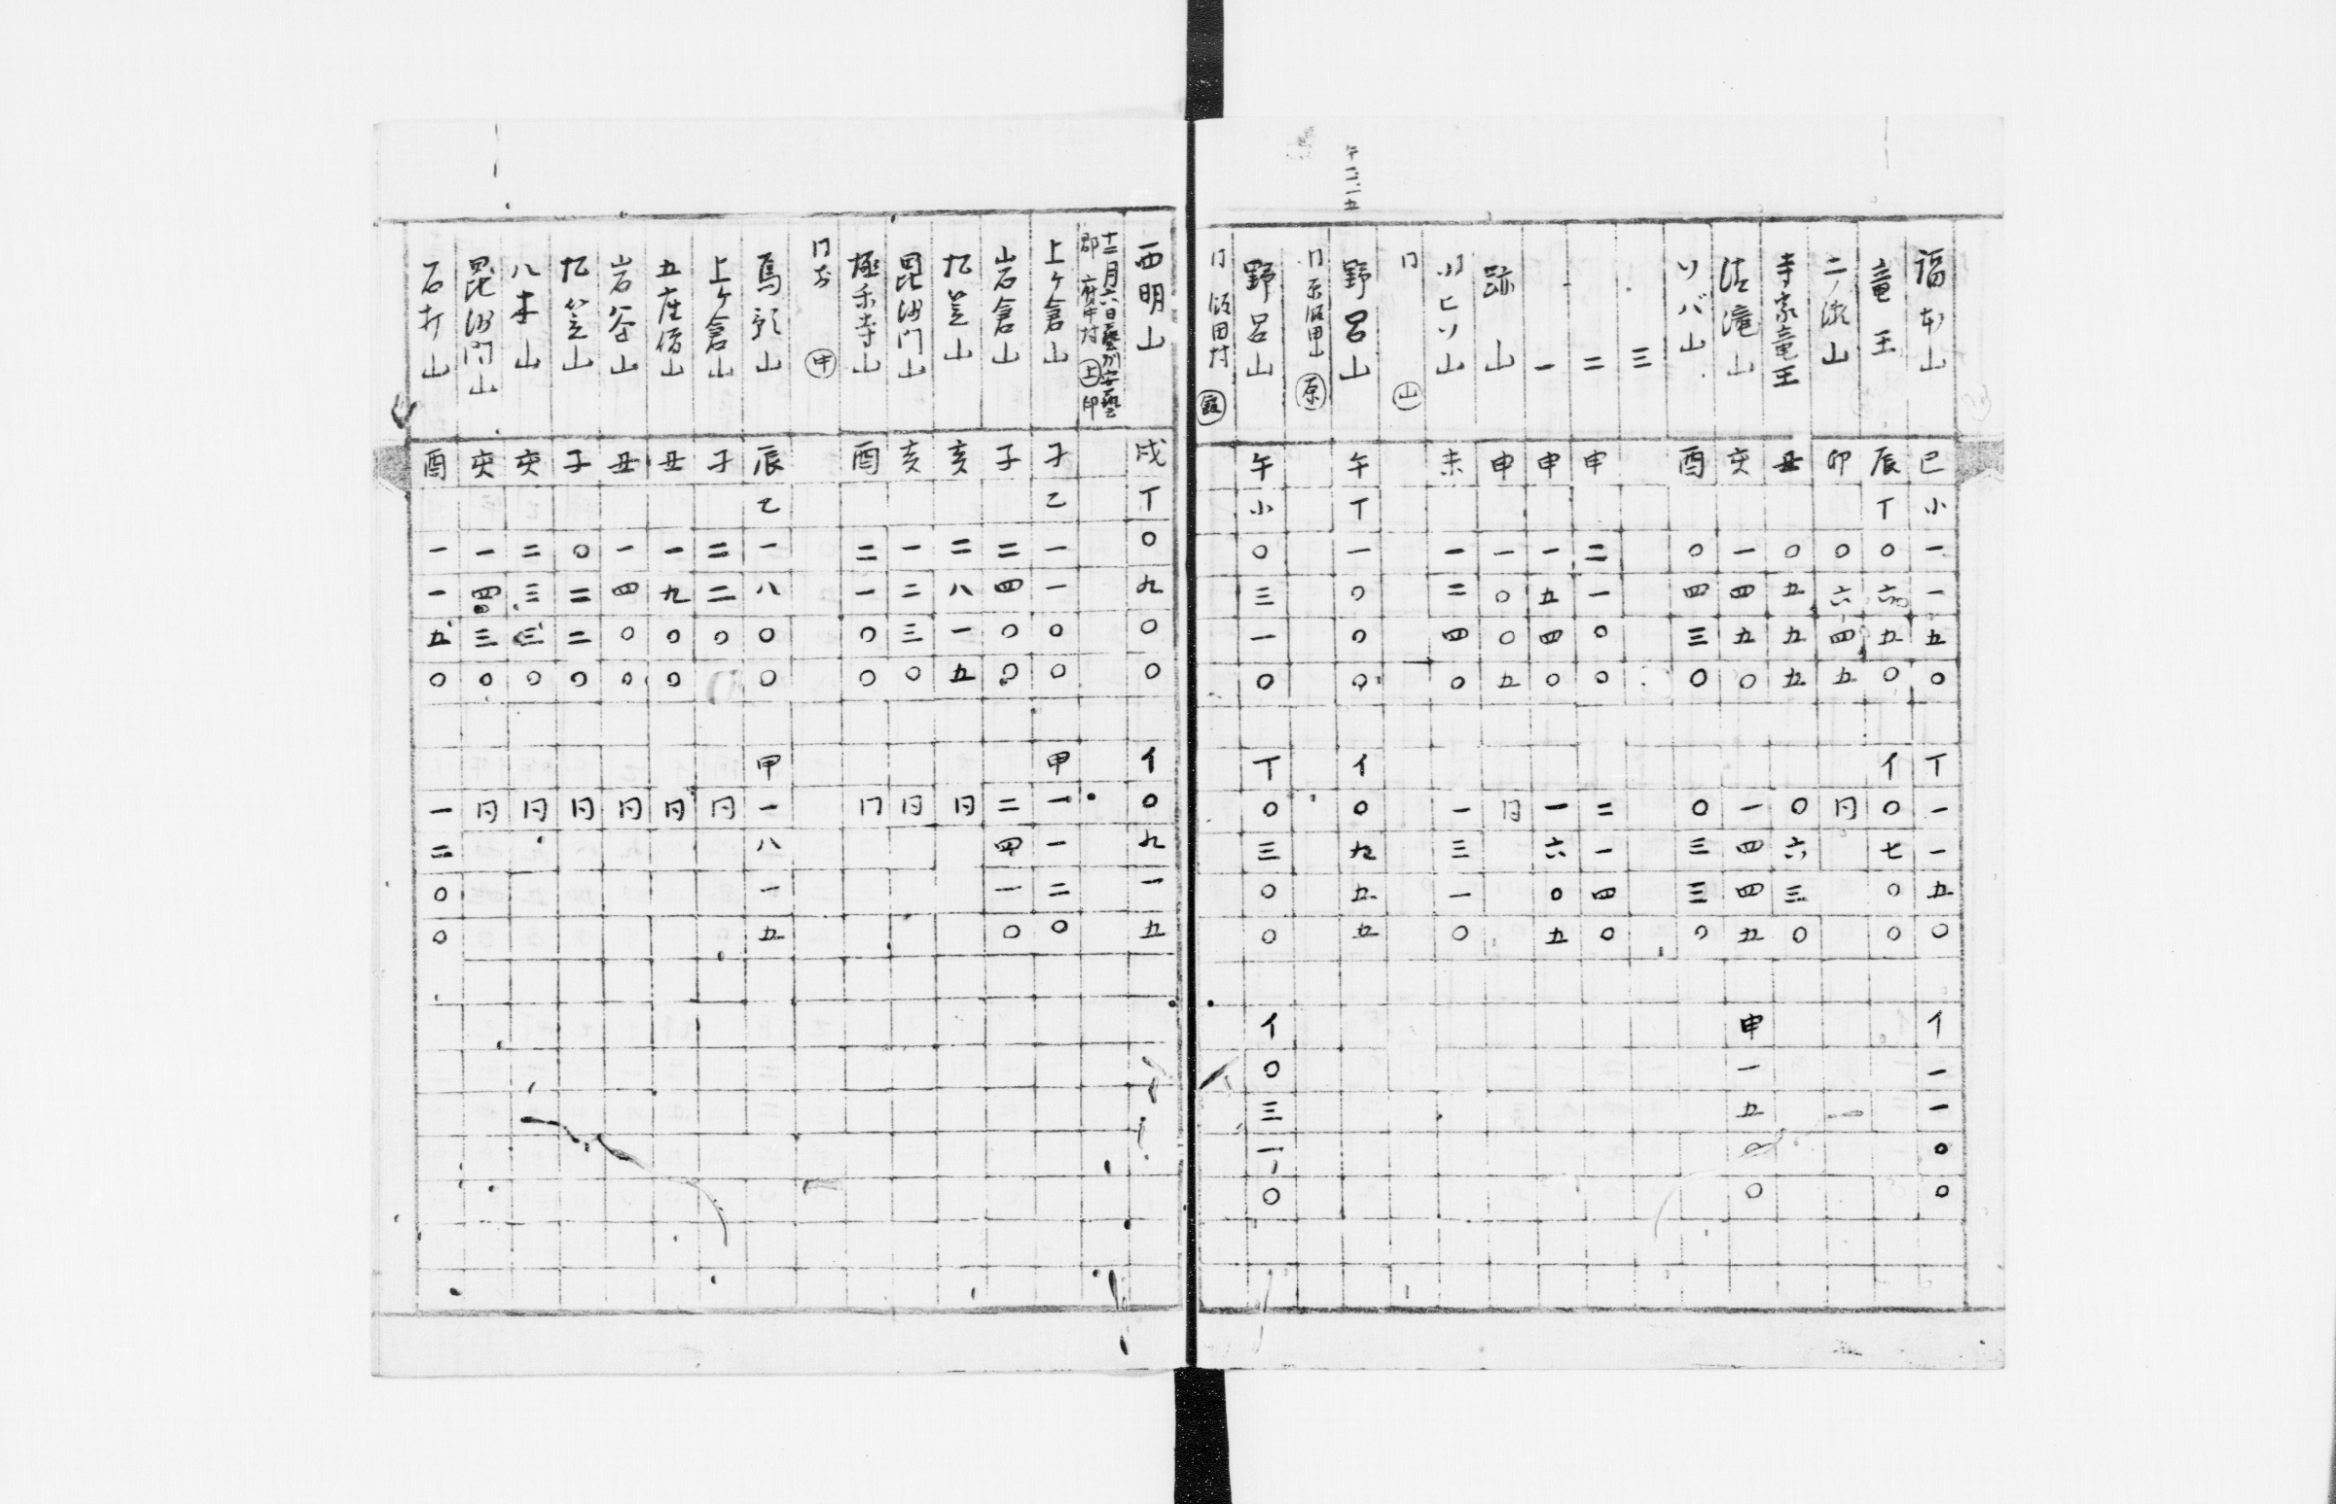 福本山 巳 小 一 一 五 〇 丁 一 一 五 〇 イ 一 一 〇 〇
竜王 辰 丁 〇 六 五 〇 イ 〇 七 〇 〇
二ノ瀬山 卯 〇 六 四 五 同
寺家竜王 丑 〇 五 五 五 〇 六 三 〇
清滝山 亥 一 四 五 〇 一 四 四 五 申 一 五 〇 〇
ソバ山 酉 〇 四 三 〇 〇 三 三 〇
三
二 申 二 一 〇 〇 二 一 四 〇
一 申 一 五 四 〇 一 六 〇 五
跡山 申 一 〇 〇 五 同
川ヒソ山 未 一 二 四 〇 一 三 一 〇
门 山
午二二一五
野呂山 午 丁 一 〇 〇 〇 イ 〇 九 五 五
门 原
野呂山 午 小 〇 三 一 〇 丁 〇 三 〇 〇 イ 〇 三 一 〇
门 飯田村
西明山 戌 丁 〇 九 〇 〇 イ 〇 九 一 五
十二月六日藝州安藝
郡 府中村 上 印
上ケ倉山 子 乙 一 一 〇 〇 甲 一 一 二 〇
岩倉山 子 二 四 〇 〇 二 四 一 〇
九笠山 亥 二 八 一 五 同
毘沙门山 亥 一 二 三 〇 同
極楽寺山 酉 二 一 〇 〇 门
门 中
馬頭山 辰 乙 一 八 〇 〇 甲 一 八 一 五
上ケ倉山 子 二 二 〇 〇 同
五座傍山 丑 一 九 〇 〇 同
岩谷山 丑 一 四 〇 〇 同
九笠山 子 〇 二 二 〇 同
八木山 亥 二 三 三 〇 同
毘沙门山 亥 一 四 三 〇 同
石打山 酉 一 一 五 〇 一 二 〇 〇